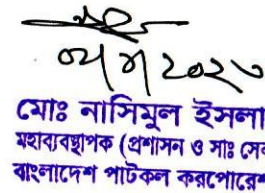 মোঃ নাসিমুল ইসলা
মহাব্যবস্থাপক (প্রশাসন ও সাঃ সে
বাংলাদেশ পাটকল করপোরে